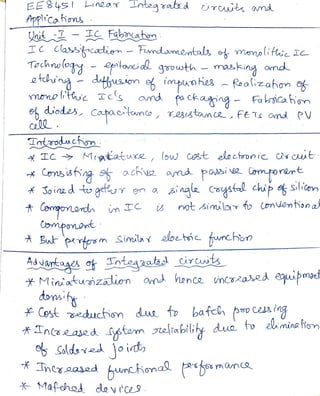 EE8451 Linear Integrated circuits and
Applications.
Unit - I - IC Fabrication.
IC classification - Fundamentals of monolithic IC
Technology - epitaxial growth - masking and
etching - diffusion of impurities - Realization of
monolithic IC's and packaging - Fabrication
of diodes, capacitance, resistance, FETs and PV
cell.
Introduction
* IC → Miniature, low cost electronic circuit
* Consisting of active and passive component
* Joined together on a single crystal chip of silicon
* Components in IC is not similar to conventional
component.
* But perform similar electric function
Advantages of Integrated circuits
* Miniaturization and hence increased equipment
density.
* Cost reduction due to batch processing
* Increased system reliability due to elimination
of soldered joints
* Increased functional performance
* Matched devices.